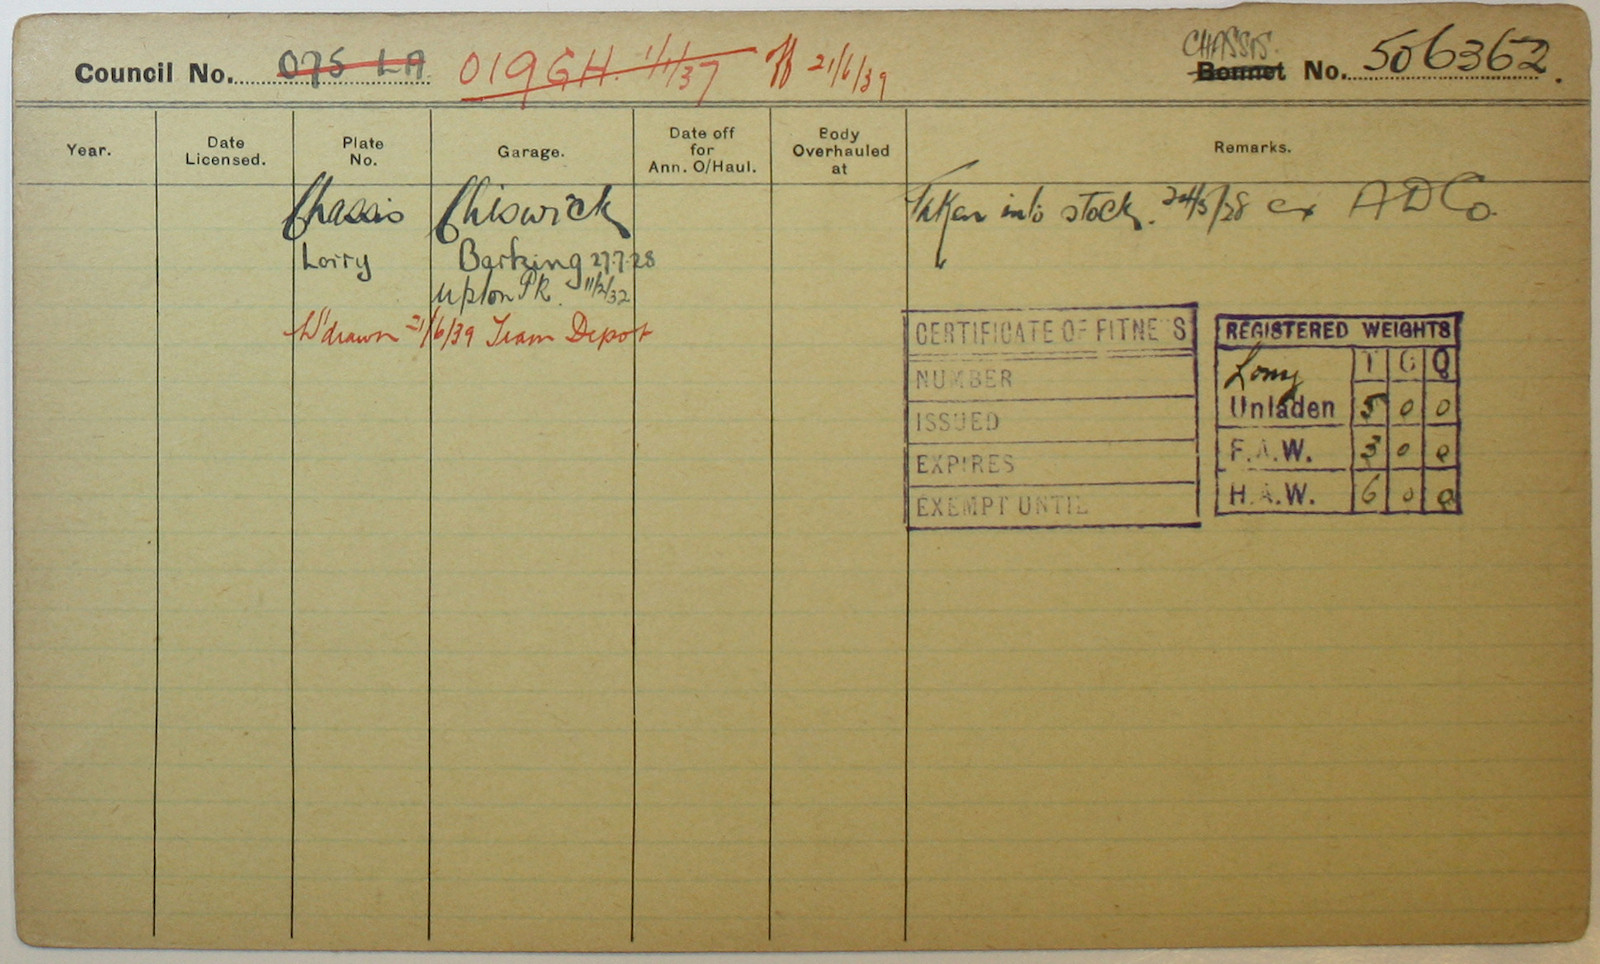 Council No. 075 LA 019GH. 1/1/37 off 21/6/39
CHASSIS. Bonnet No. 506362.
Year. Date Licensed. Plate No. Garage. Date off for Ann. O/Haul. Body Overhauled at Remarks.
Chassis Chiswick Taken into stock. 24/5/28 ex ADCo.
Lorry Barking 27.7.28
Upton Pk. 11/2/32
W'drawn 21/6/39 Tram Depot
CERTIFICATE OF FITNESS
NUMBER
ISSUED
EXPIRES
EXEMPT UNTIL
REGISTERED WEIGHTS
Lorry T C Q
Unladen 5 0 0
F.A.W. 3 0 0
H.A.W. 6 0 0